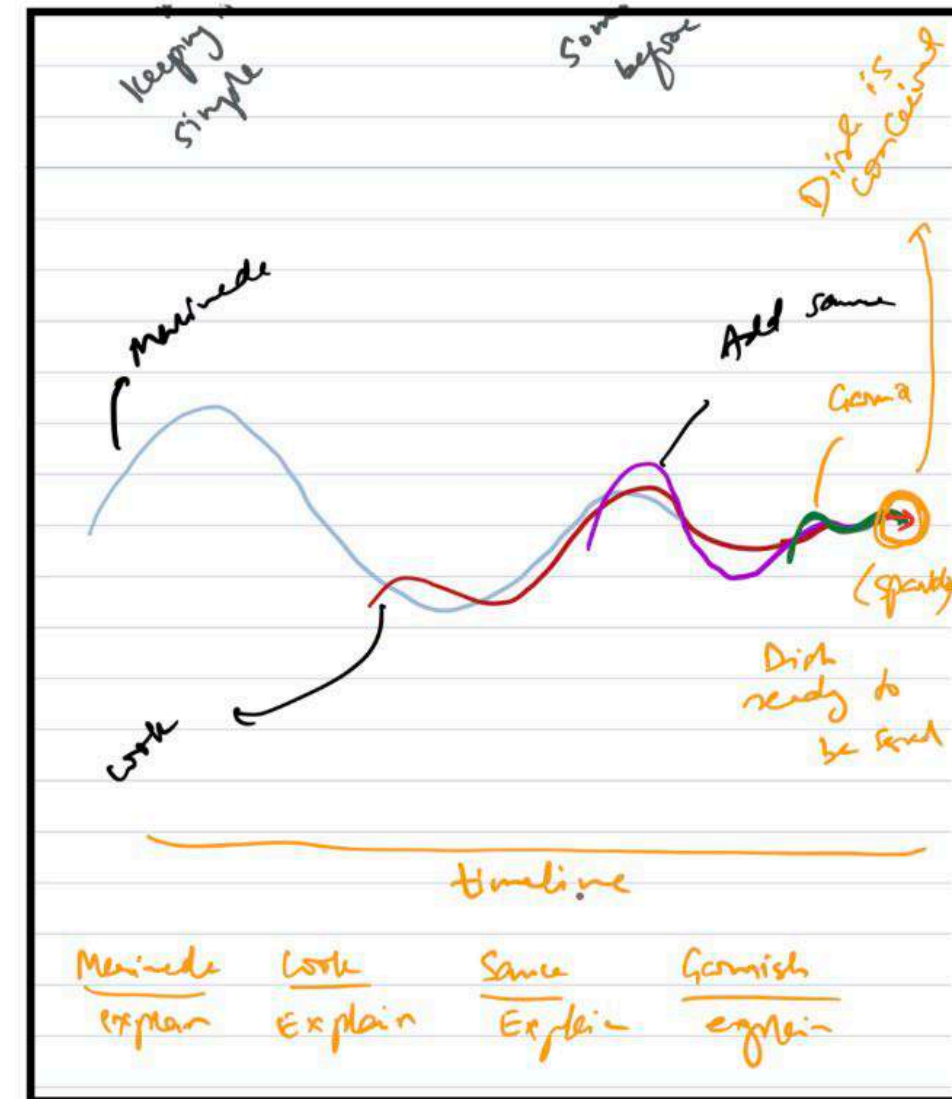 keeping
simple
before
Dish is
conceived
Marinade
Add sauce
Garni
(sparkle
Dish
ready to
be served
Cook
timeline
Marinade
explain
Cook
Explain
Sauce
Explain
Garnish
explain